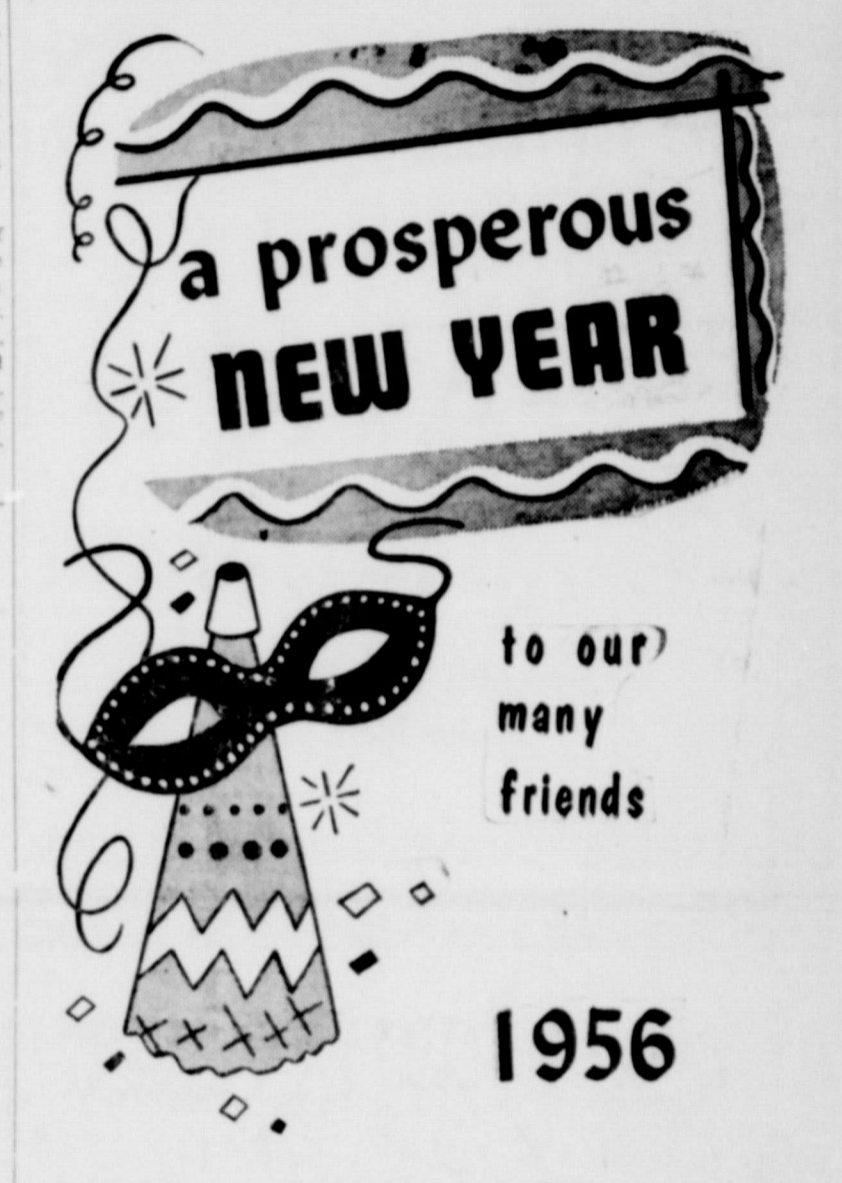 a prosperous
NEW YEAR
to our
many
friends
1956